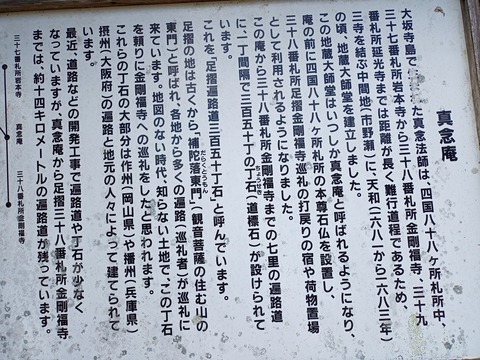 真念庵
大坂寺島で
た真念法師は、四国八十八ヶ所札所中、
三十七番札所岩本寺から三十八番札所金剛福寺、三十九
番札所延光寺までは距離が長く難行道程であるため、
三寺を結ぶ中間地(市野瀬)に、天和(一六八一から一六八三年)
の頃、地蔵大師堂を建立しました。
この地蔵大師堂はいつしか真念庵と呼ばれるようになり、
庵の前に四国八十八ヶ所札所の本尊石仏を設置し、
三十八番札所足摺金剛福寺巡礼の打戻りの宿や荷物置場
として利用されるようになりました。
この庵から三十八番札所金剛福寺までの七里の遍路道
に、一丁間隔で三百五十丁の丁石(道標石)が設けられて
ちょうせき
います。
これを「足摺遍路道三百五十丁石」と呼んでいます。
足摺の地は古くから「補陀落東門」(観音菩薩の住む山の
だらくとうもん
東門)と呼ばれ、各地から多くの遍路(巡礼者)が巡礼に
来ています。地図のない時代、知らない土地で、この丁石
を頼りに金剛福寺への巡礼をしたと思われます。
これらの丁石の大部分は作州(岡山県)や播州(兵庫県)
摂州(大阪府)の遍路と地元の人々によって建てられて
います。
最近、道路などの開発工事で遍路道や丁石が少なく
なっていますが、真念庵から足摺三十八番札所金剛福寺
までは、約十四キロメートルの遍路道が残っています。
三十七番札所岩本寺
真念庵
三十八番札所金剛福寺